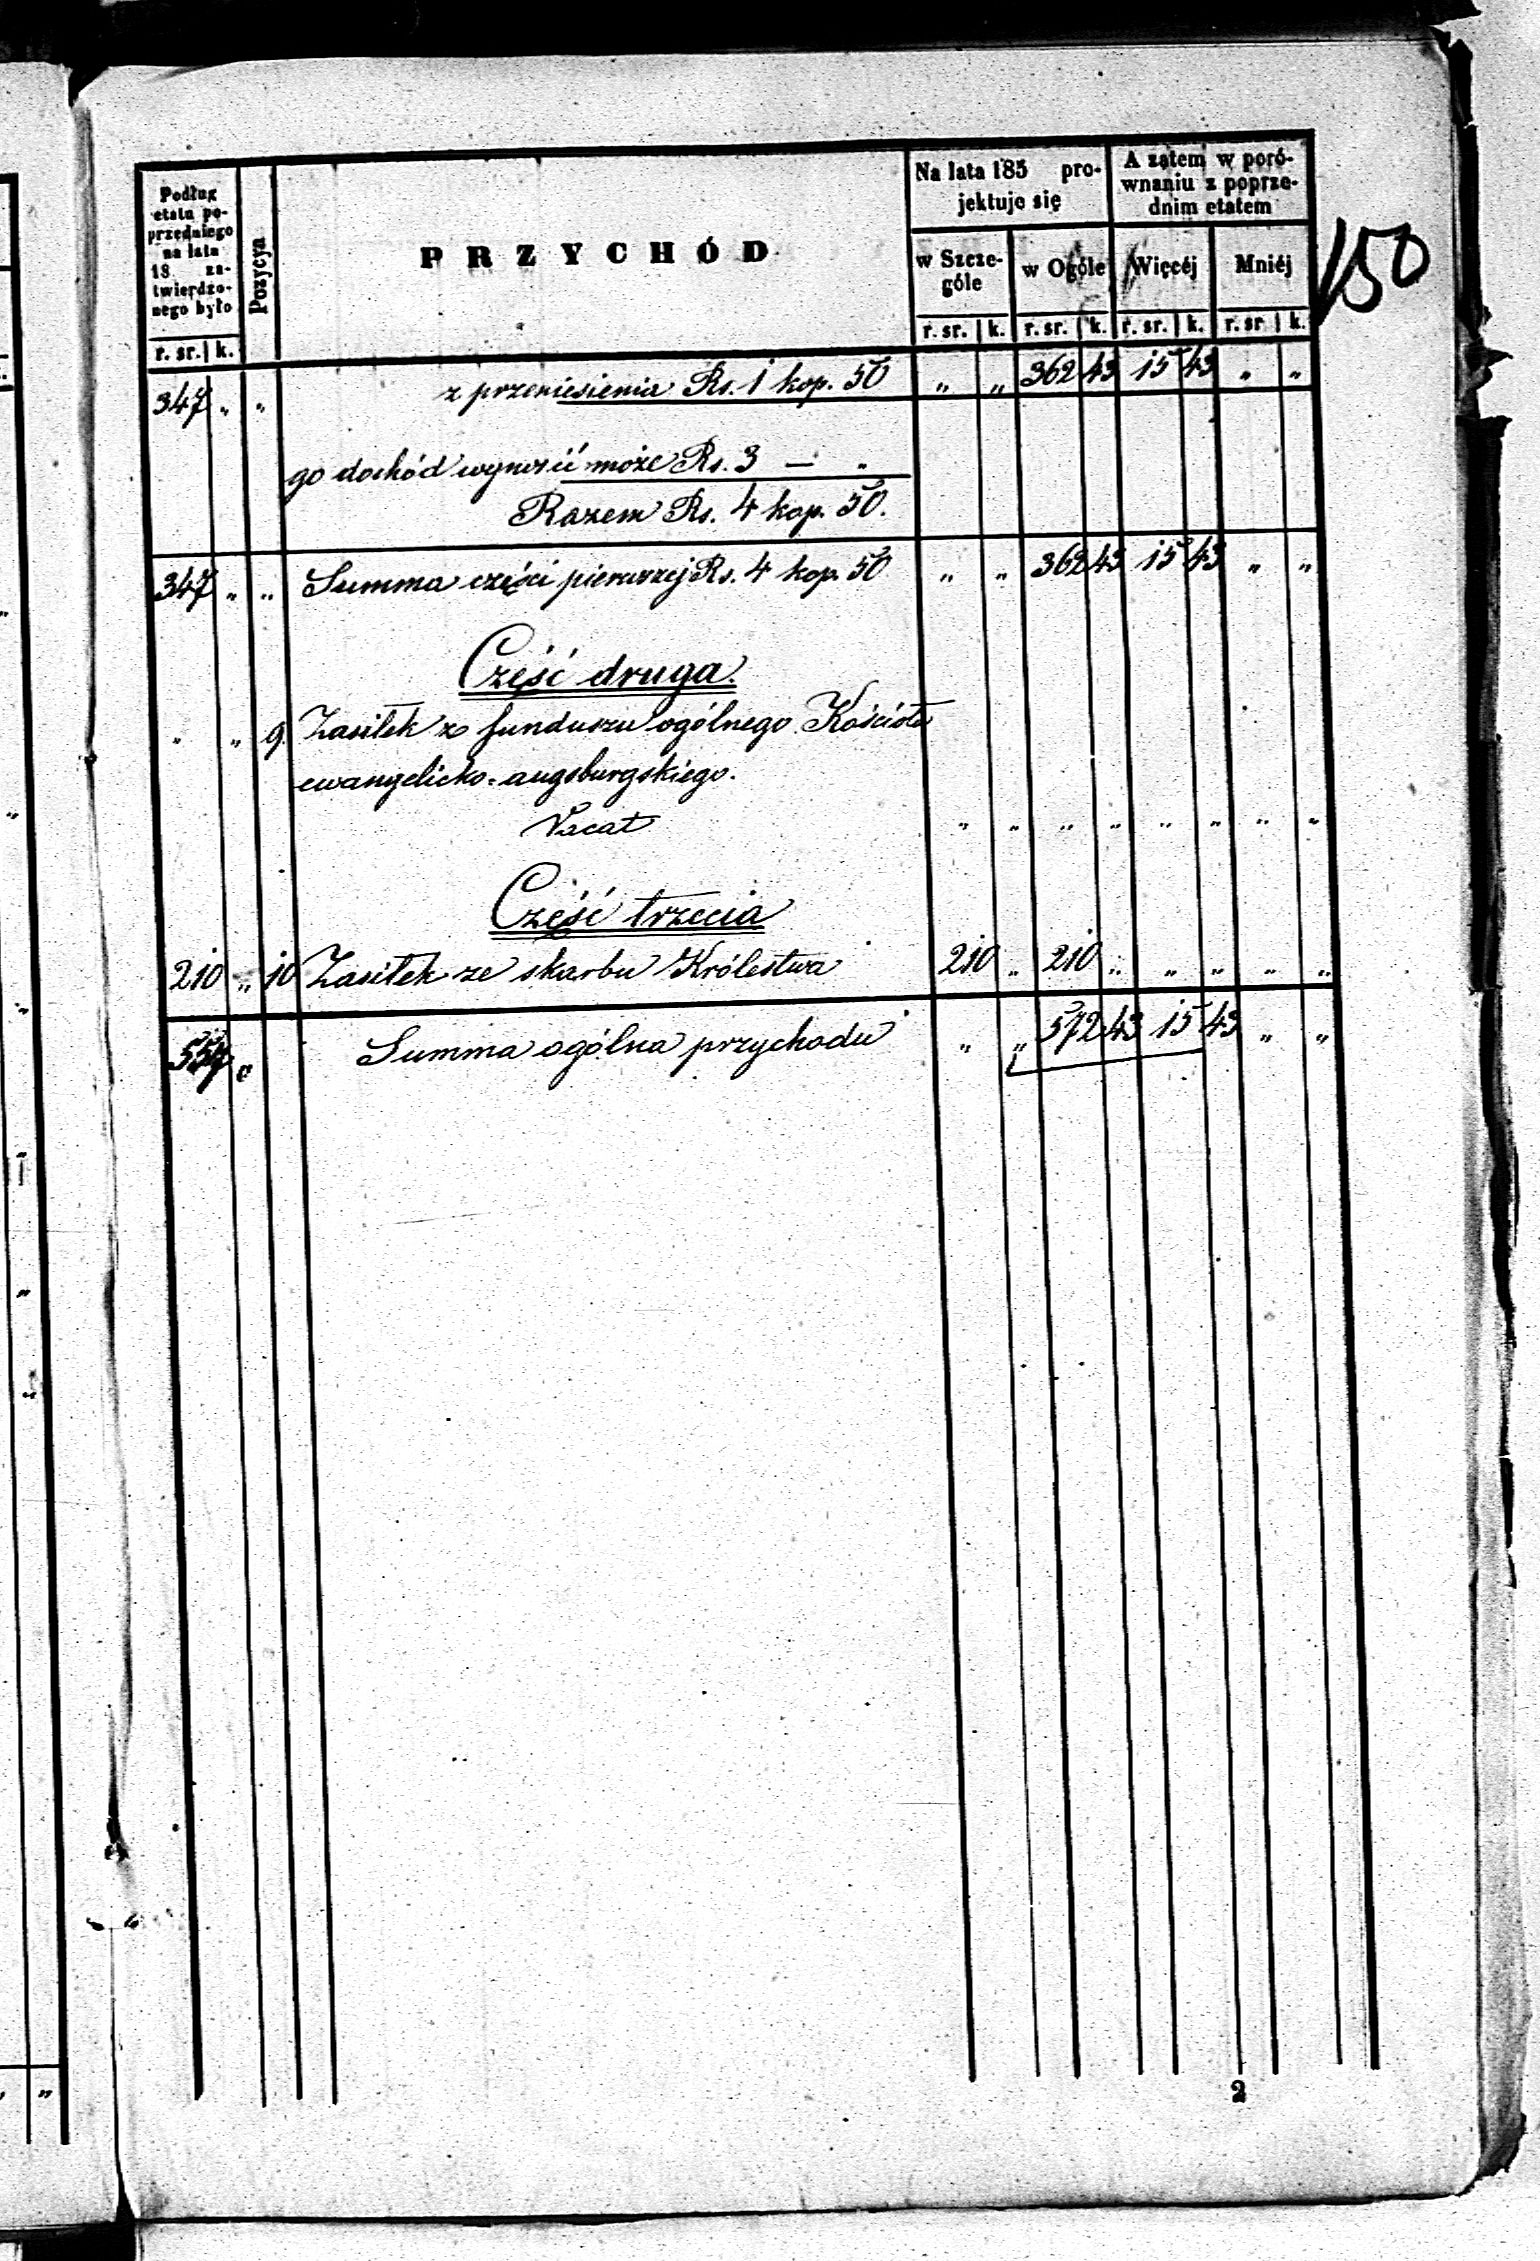 Podług etatu po-przedniego na lata 18 za-twierdzo-nego było
Pozycya
PRZYCHÓD
Na lata 185 pro-
jektuje się
A zatem w poró-
wnaniu z poprze-
dnim etatem
w Szcze-
góle
w Ogóle
Więcéj
Mniéj
r. sr. k.
r. sr. k. r. sr. k. r. sr. k. r. sr k.
150
347 „ „ z przeniesienia Rs. 1 kop. 50 „ „ 362 43 15 43 „ „
go dochód wynosić może Rs. 3 — „
Razem Rs. 4 kop. 50.
347 „ „ Summa części pierwszej Rs. 4 kop. 50 „ „ 362 43 15 43 „ „
Część druga.
„ „ 9. Zasiłek z funduszu ogólnego Kościoła
ewangelicko-augsburgskiego.
Vacat „ „ „ „ „ „ „ „
Część trzecia
210 „ 10 Zasiłek ze skarbu Królestwa 210 „ 210 „ „ „ „ „
557 „ Summa ogólna przychodu „ „ 572 43 15 43 „ „
2